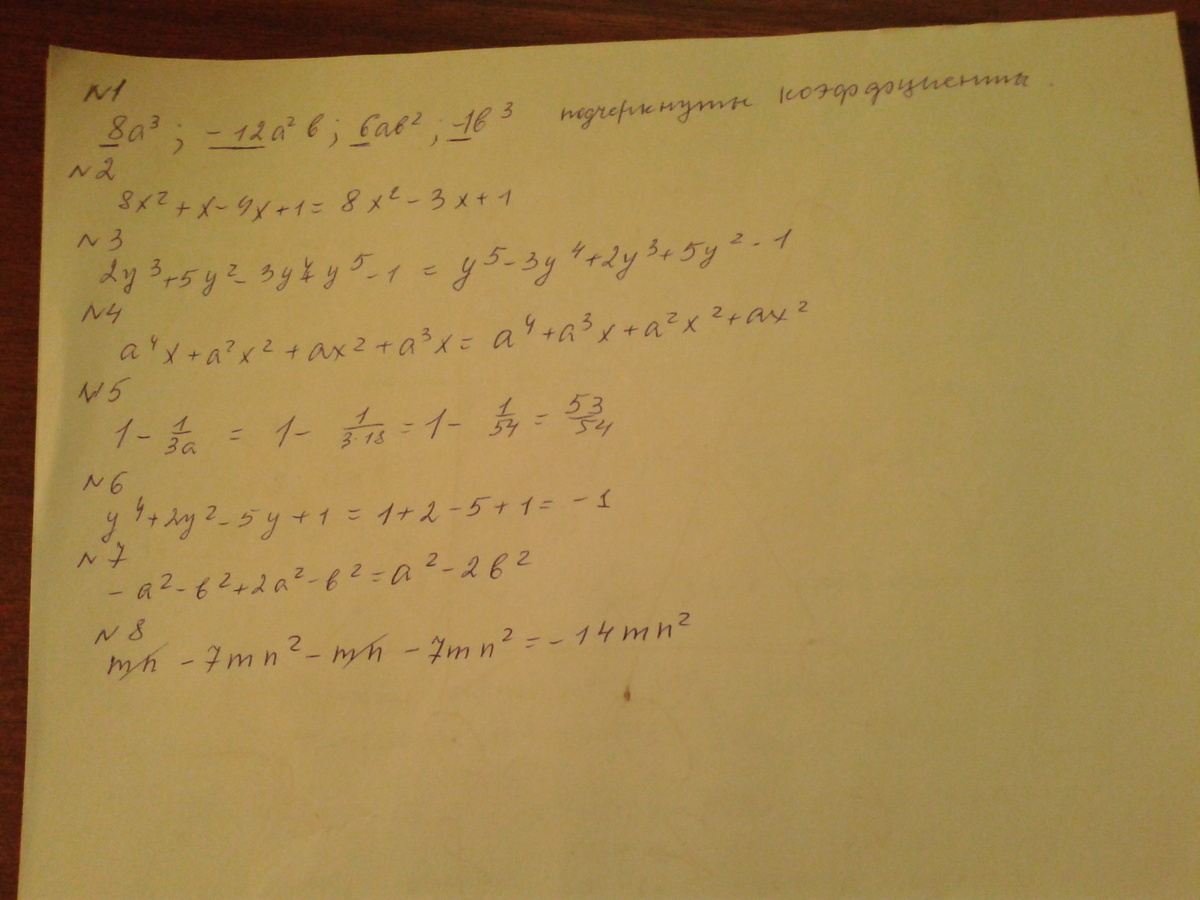 №1
8a³; -12a²b; 6ab²; -1b³ подчеркнуты коэффициенты.
№2
8x²+x-4x+1=8x²-3x+1
№3
2y³+5y²-3y⁴+y⁵-1=y⁵-3y⁴+2y³+5y²-1
№4
a⁴x+a²x²+ax²+a³x=a⁴+a³x+a²x²+ax²
№5
1-1/3a=1-1/3·18=1-1/54=53/54
№6
y⁴+2y²-5y+1=1+2-5+1=-1
№7
-a²-b²+2a²-b²=a²-2b²
№8
mn-7mn²-mn-7mn²=-14mn²